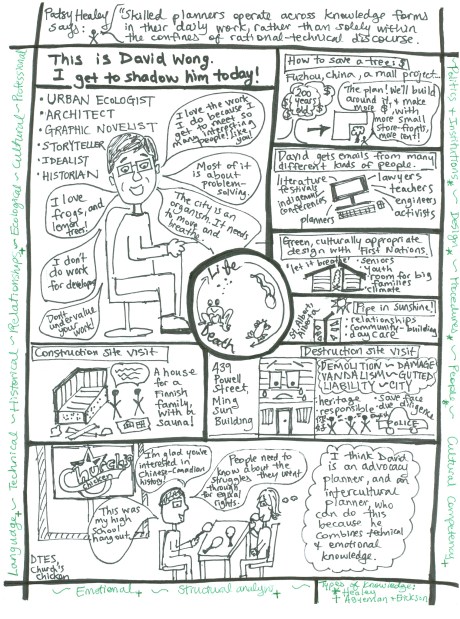 Patsy Healey says:
"Skilled planners operate across knowledge forms
in their daily work, rather than solely within
the confines of rational-technical discourse.
This is David Wong.
I get to shadow him today!
• URBAN ECOLOGIST
• ARCHITECT
• GRAPHIC NOVELIST
• STORYTELLER
• IDEALIST
• HISTORIAN
I love the work
I do because I
get to meet so
many interesting
people, like
you!
Most of it
is about
problem-
solving.
The city is an
organism. It needs
to move and
breathe.
I love
frogs, and
lemon
trees!
I don't
do work
for developers
Don't
undervalue
your
work!
Life
Death
How to save a tree: $
Fuzhou, China, a mall project...
200
years
old!
The plan! We'll
build around
it, & make
more
$, with
more small
store-fronts,
more rent!
David gets emails from many
different kinds of people.
literature
festivals
indigenous
conferences
planners
lawyers
teachers
engineers
activists
Green, culturally appropriate
design with First Nations.
"let it breathe"
• seniors
• youth
• room for big
families
• climate
St. Albert,
Alberta
Pipe in sunshine!
• relationships
• community-building
• daycare
Construction site visit
A house
for a
Finnish
family,
with a
sauna!
439
Powell
Street,
Ming
Sun
Building
Destruction site visit
DEMOLITION ~ DAMAGE
VANDALISM ~ GUTTED
LIABILITY ~ CITY
heritage
responsible
save face
due diligence
POLICE
Church's
chicken
This was
my high
school
hangout.
DTES,
Church's
chicken
I'm glad you're
interested in
Chinese-Canadian
history!
People need to
know about the
struggles they went
through for equal
rights.
I think David
is an advocacy
planner, and an
intercultural
planner, who
can do this
because he
combines technical
& emotional
knowledge.
Language + Technical ~ Historical ~ Relationships + Ecological ~ Cultural ~ Professional
Politics + Institutions * ~ Design * ~ Procedures * ~ People * ~ Cultural Competency +
~ Emotional + ~ Structural analysis + ~
Types of knowledge:
* Healey
+ Agyeman + Erickson